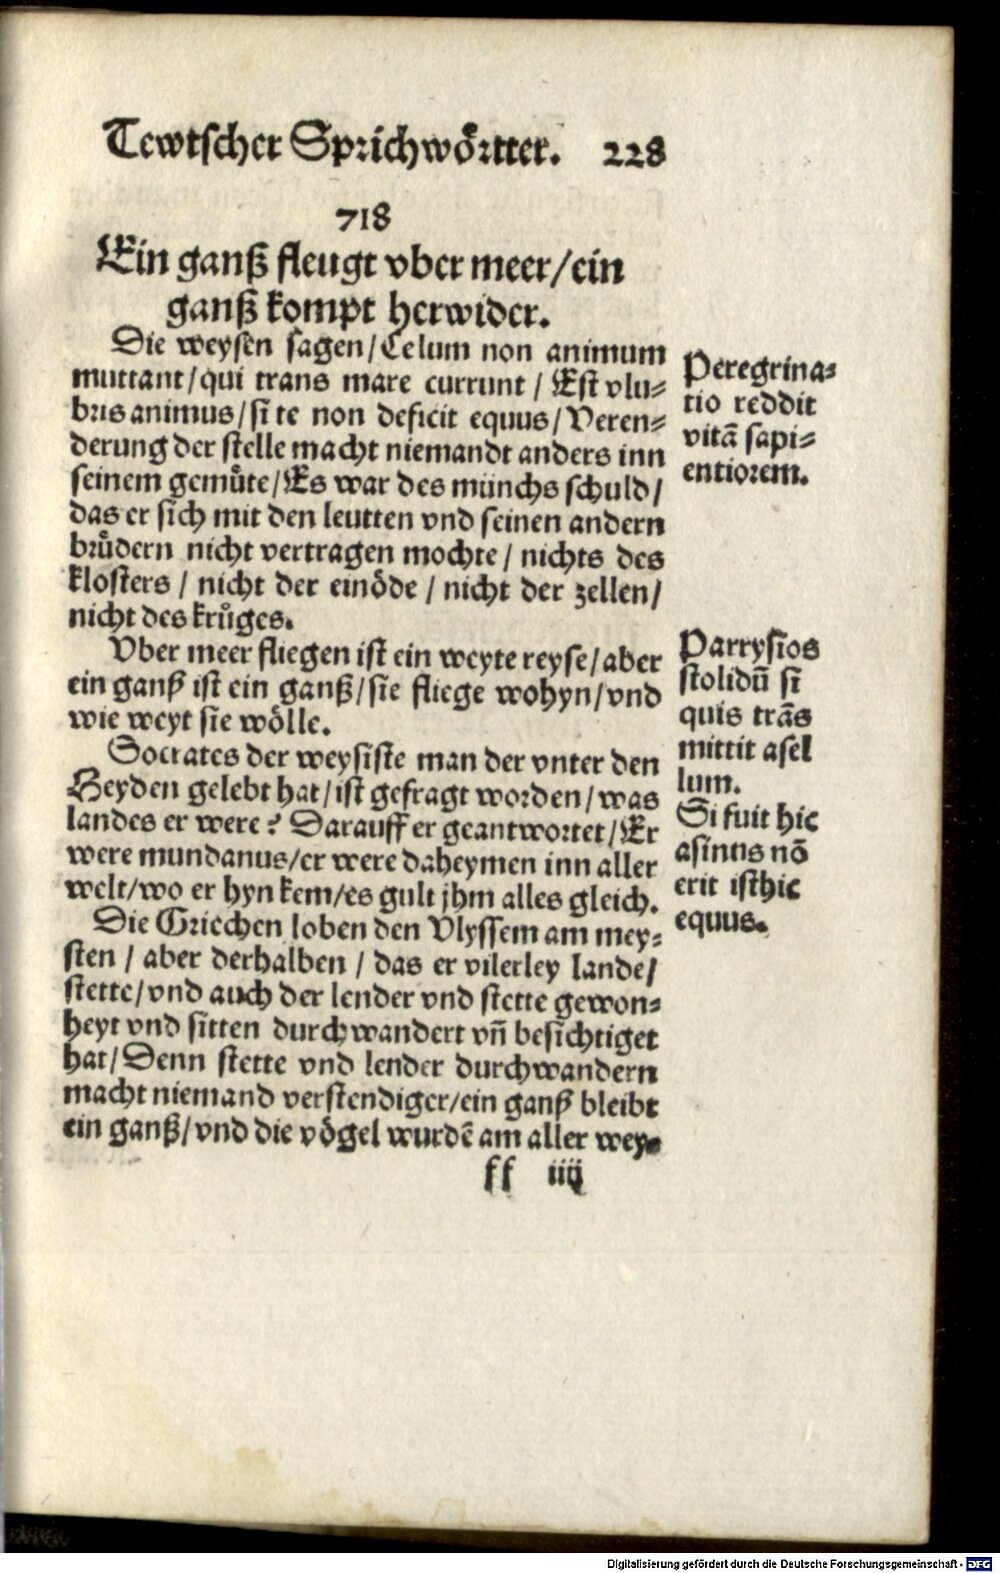 Tewtscher Sprichwoͤrtter. 228
718
Ein ganß fleugt vber meer/ein
ganß kompt herwider.
Die weysen sagen/Celum non animum
muttant/qui trans mare currunt/Est vlu⸗
bris animus/si te non deficit equus/Veren⸗
derung der stelle macht niemandt anders inn
seinem gemuͤte/Es war des münchs schuld/
das er sich mit den leutten vnd seinen andern
bruͤdern nicht vertragen mochte/nichts des
klosters/nicht der einöde/nicht der zellen/
nicht des kruͤges.
Vber meer fliegen ist ein weyte reyse/aber
ein ganß ist ein ganß/sie fliege wohyn/vnd
wie weyt sie wölle.
Socrates der weysiste man der vnter den
Heyden gelebt hat/ist gefragt worden/was
landes er were? Darauff er geantwortet/Er
were mundanus/er were daheymen inn aller
welt/wo er hyn kem/es gult jhm alles gleich.
Die Griechen loben den Vlyssem am mey⸗
sten/aber derhalben/das er vilerley lande/
stette/vnd auch der lender vnd stette gewon⸗
heyt vnd sitten durchwandert vñ besichtiget
hat/Denn stette vnd lender durchwandern
macht niemand verstendiger/ein ganß bleibt
ein ganß/vnd die vögel wurdē am aller wey⸗
ff iiij
Peregrina⸗
tio reddit
vitā sapi⸗
entiorem.
Parrysios
stolidū si
quis trās
mittit asel
lum.
Si fuit hic
asinus nō
erit isthic
equus.
Digitalisierung gefördert durch die Deutsche Forschungsgemeinschaft - DFG